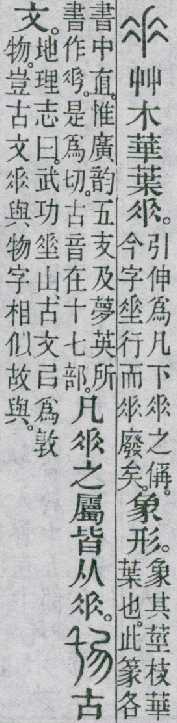 艸木華葉𠂹。引伸爲凡下𠂹之偁。今字𡍮行而𠂹廢矣。象形。象其莖枝華葉也。此篆各
書中直。惟廣韵五支及夢英所書作𠂹。是爲切。古音在十七部。凡𠂹之屬皆从𠂹。古
文。地理志曰。武功𡍮山。古文㠯爲敦物。豈古文𠂹與物字相似故與。